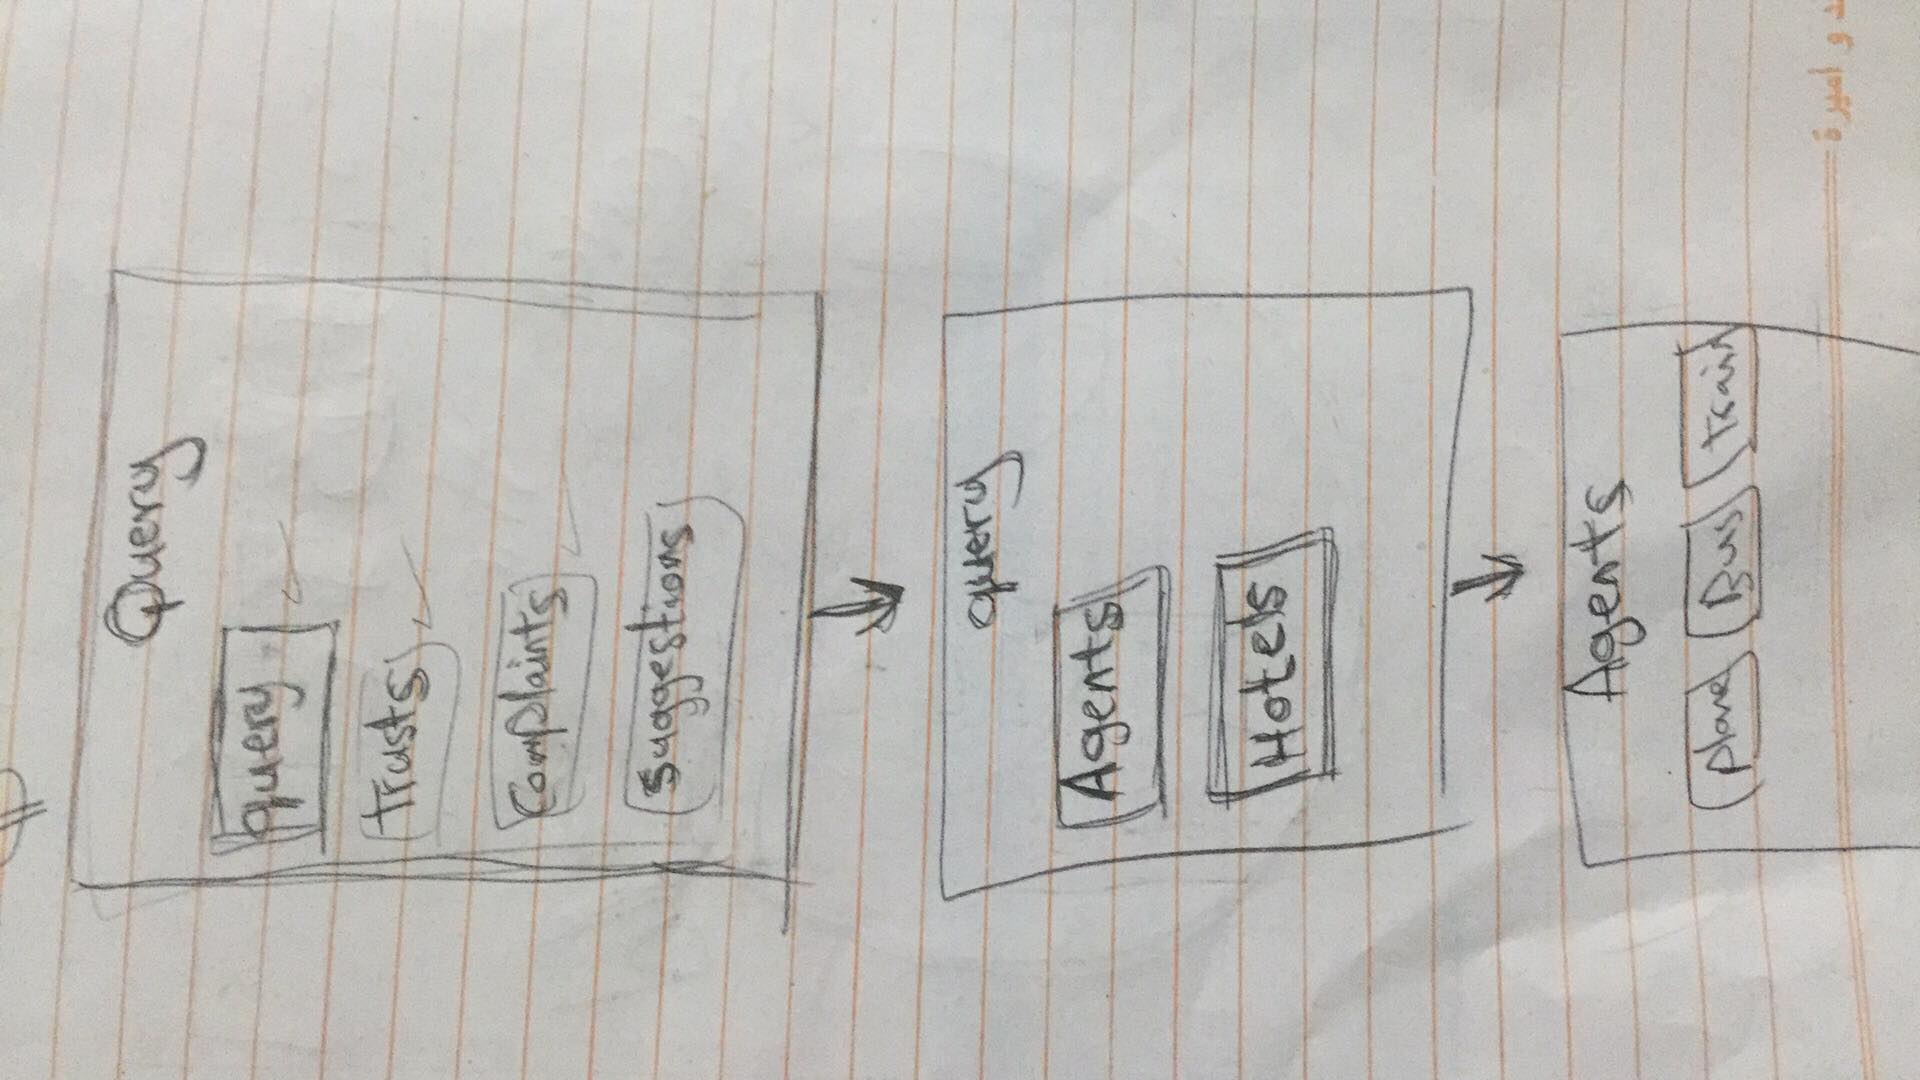 Query
query
Trusts
Complaints
Suggestions
query
Agents
Hotels
Agents
plane Bus train
و اميرة